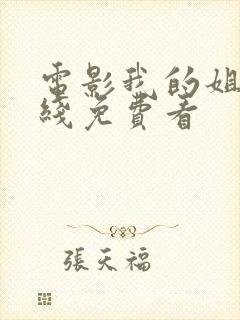 電影我的姐
綫免費看
張天福